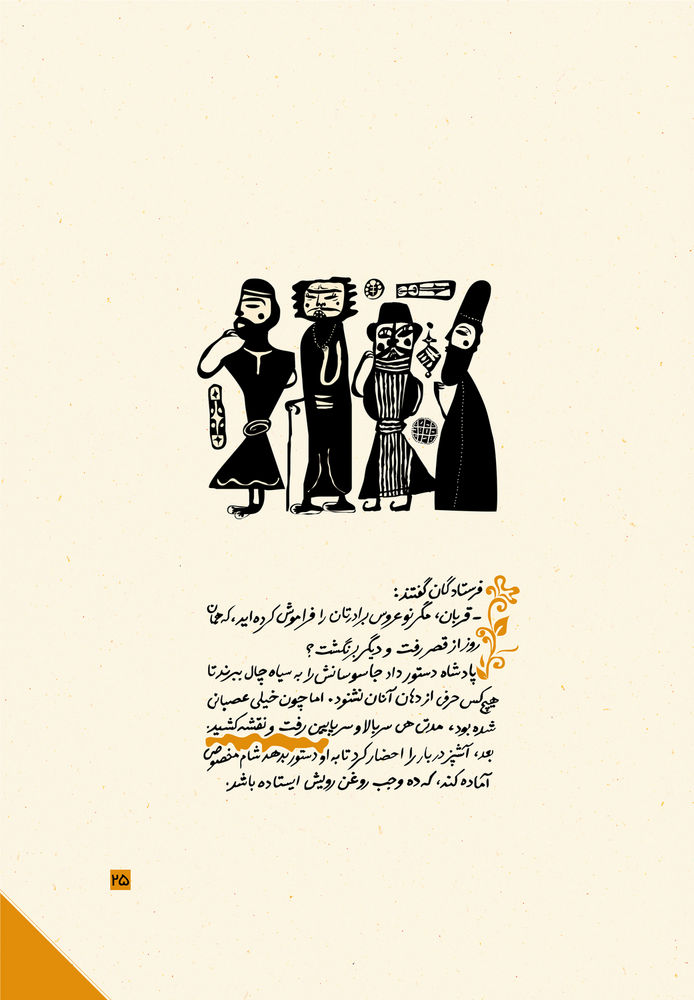 فرستادگان گفتند:
ـ قربان، مگر نوعروس برادرتان را فراموش کرده‌اید، که همان
روز از قصر رفت و دیگر برنگشت؟
پادشاه دستور داد جاسوسانش را به سیاه چال ببرند تا
هیچ‌کس حرفی از دهان آنان نشنود. اما چون خیلی عصبانی
شده بود، مدتی هی سربالا و سرپایین رفت و نقشه کشید.
بعد، آشپز دربار را احضار کرد تا به او دستور بدهد شام مخصوص
آماده کند، که ده وجب روغن رویش ایستاده باشد.
۲۵